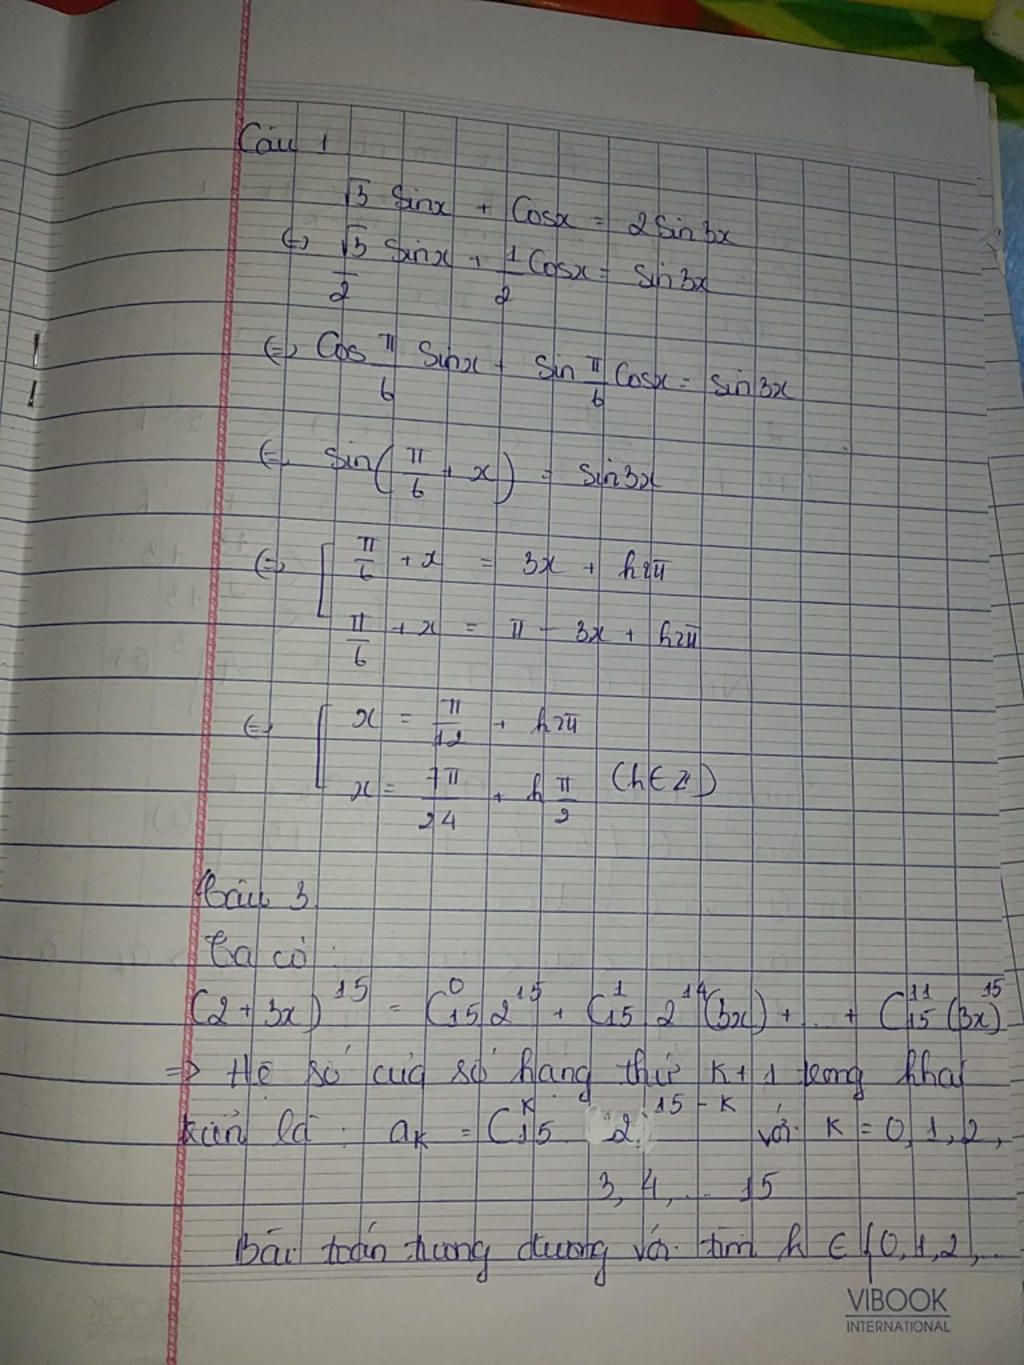 Câu 1
√3 Sinx + Cosx = 2Sin3x
(=) √3/2 Sinx + 1/2 Cosx = sin3x
(=) Cos π/6 Sinx + Sin π/6 Cosx = sin3x
(=) sin(π/6 + x) = sin3x
(=) [ π/6 + x = 3x + k2π
π/6 + x = π - 3x + k2π
(=) [ x = π/12 + k2π
x = 7π/24 + k π/2 (k ∈ Z)
Câu 3
Ta có:
(2 + 3x)^15 = C_15^0 2^15 + C_15^1 2^14 (3x) + ... + C_15^11 (3x)^15
=> Hệ số của số hạng thứ K+1 trong khai
triển là: a_K = C_15^K 2^(15-K) với K = 0, 1, 2,
3, 4, ... 15
Bài toán tương đương với tìm k ∈ {0, 1, 2, ...
VIBOOK
INTERNATIONAL